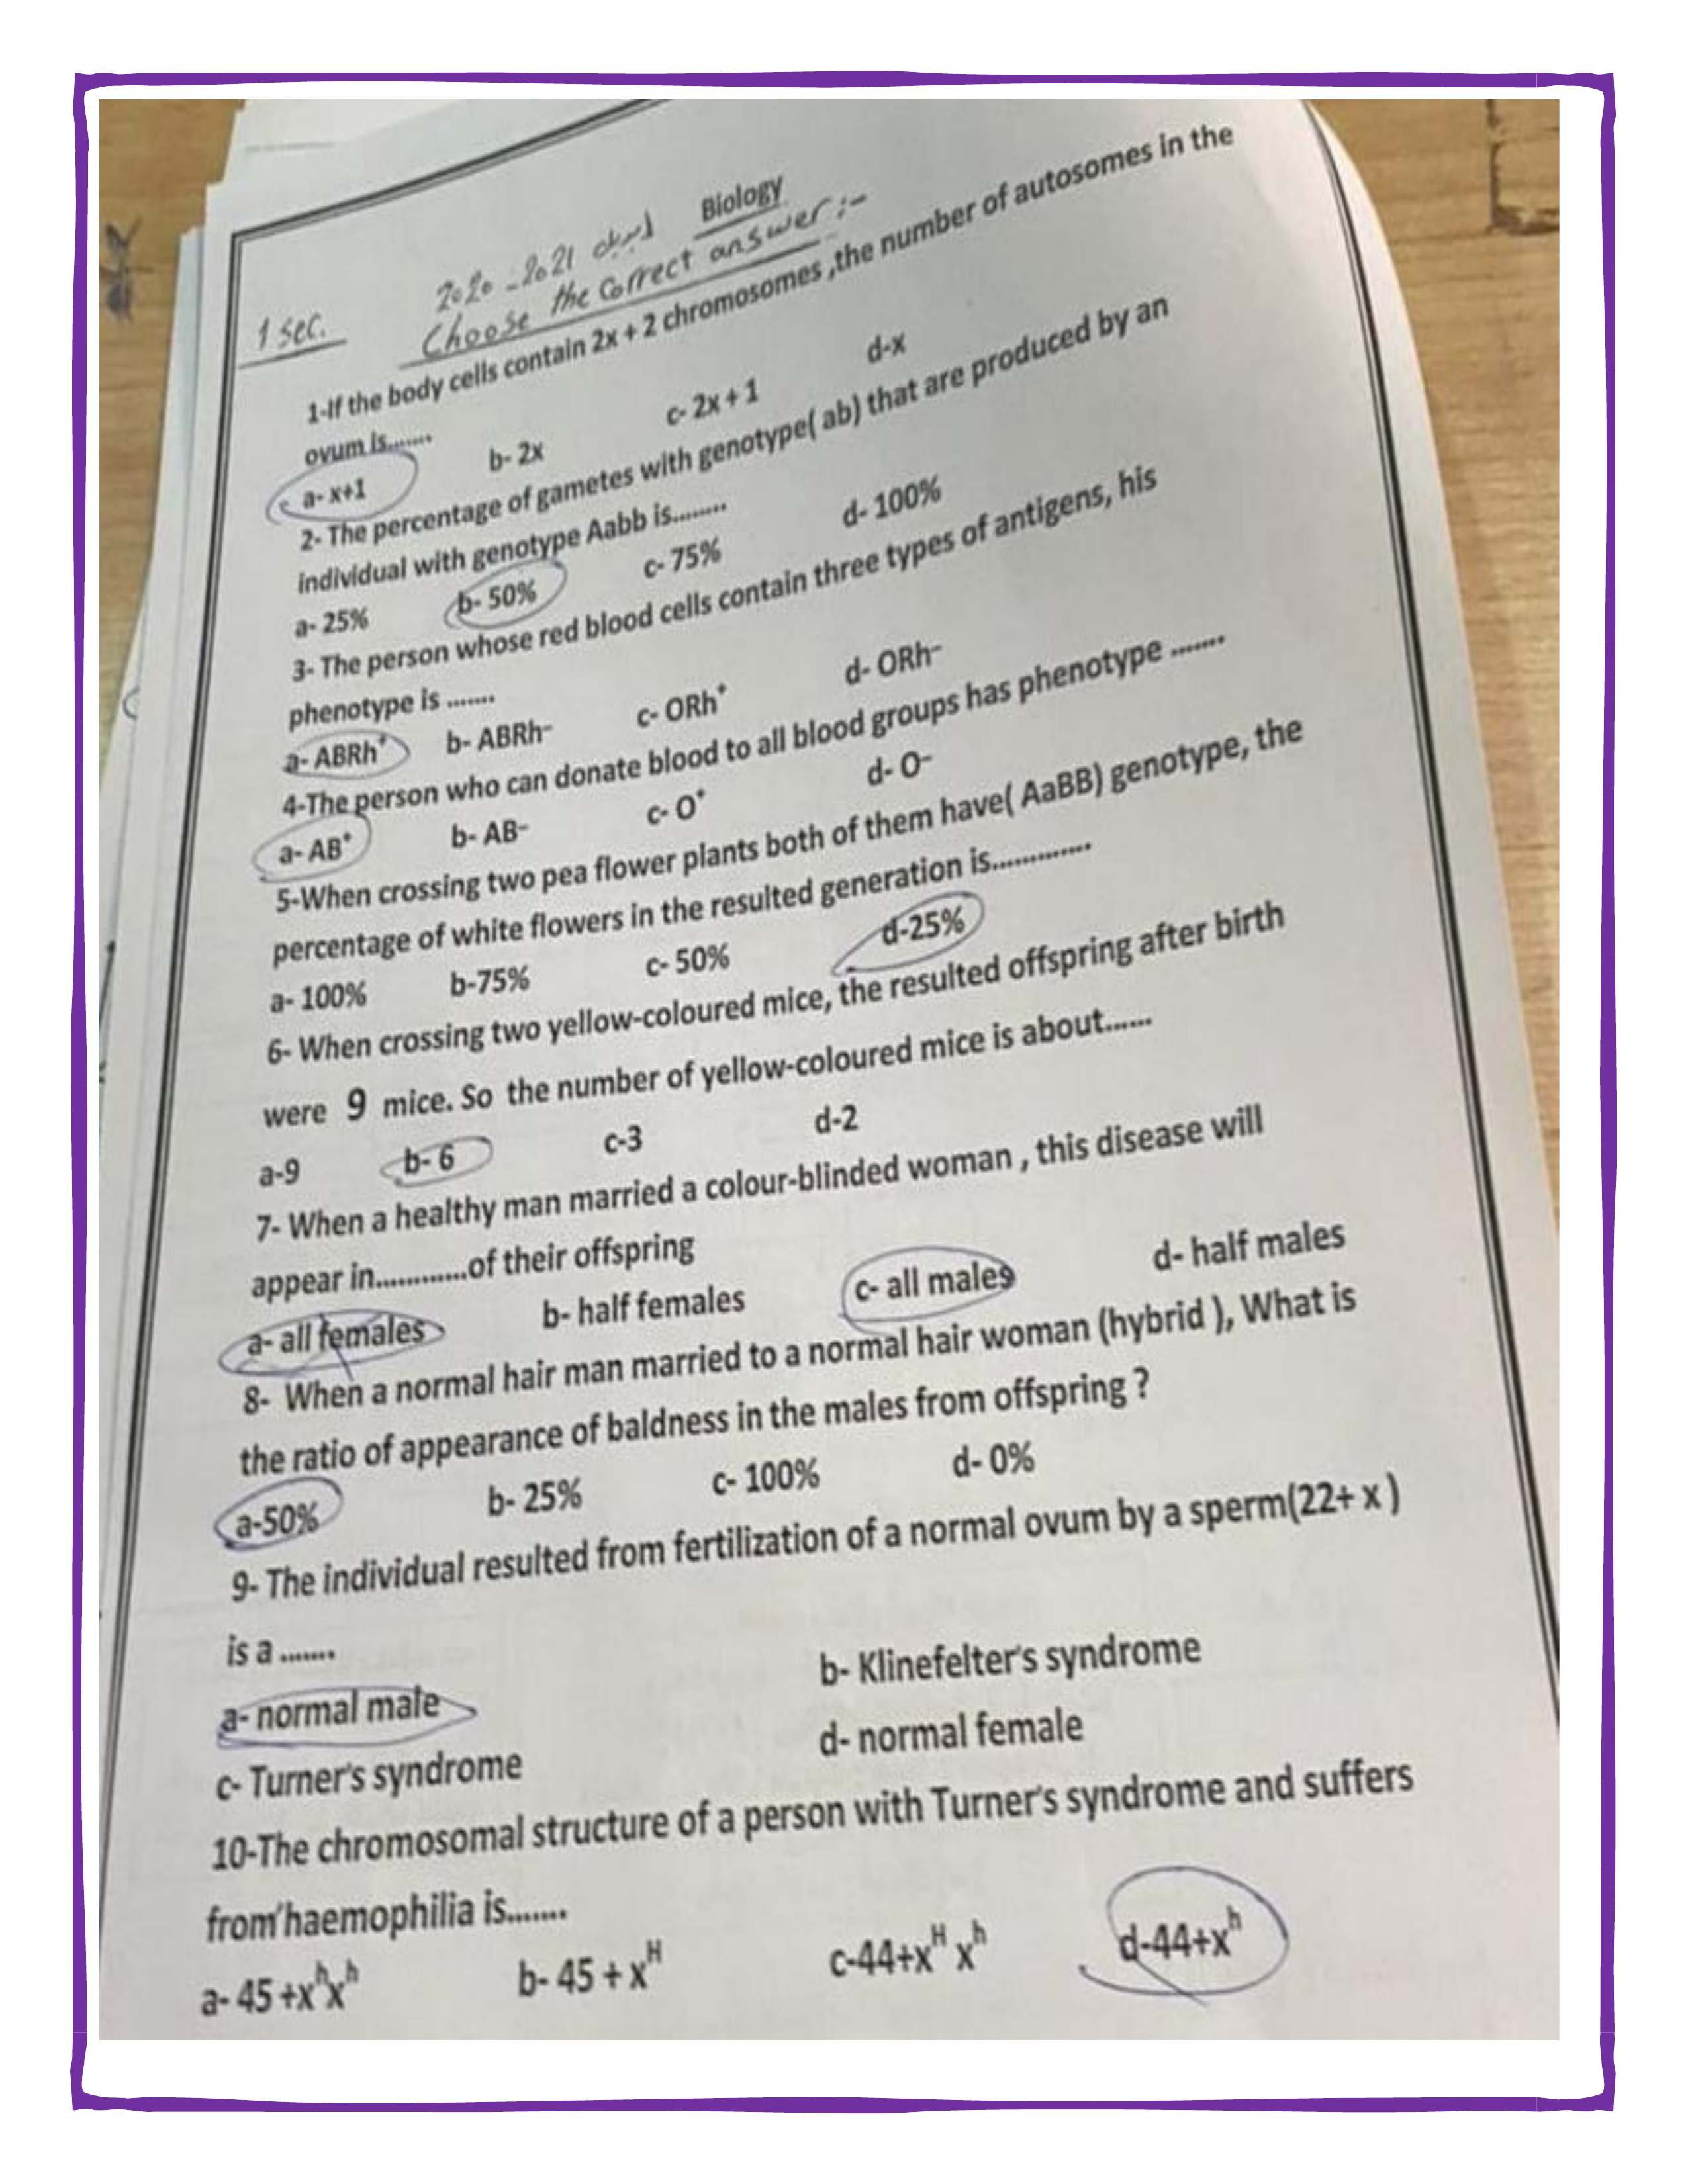 Biology
2020 - 2021 ابريل
1 sec.
Choose the Correct answer :-
1-If the body cells contain 2x + 2 chromosomes ,the number of autosomes in the
ovum is.......
a- x+1 b- 2x c- 2x + 1 d-x
2- The percentage of gametes with genotype( ab) that are produced by an
individual with genotype Aabb is........
a- 25% b- 50% c- 75% d- 100%
3- The person whose red blood cells contain three types of antigens, his
phenotype is .......
a- ABRh⁺ b- ABRh⁻ c- ORh⁺ d- ORh⁻
4-The person who can donate blood to all blood groups has phenotype .......
a- AB⁺ b- AB⁻ c- O⁺ d- O⁻
5-When crossing two pea flower plants both of them have( AaBB) genotype, the
percentage of white flowers in the resulted generation is.............
a- 100% b-75% c- 50% d-25%
6- When crossing two yellow-coloured mice, the resulted offspring after birth
were 9 mice. So the number of yellow-coloured mice is about......
a-9 b- 6 c-3 d-2
7- When a healthy man married a colour-blinded woman , this disease will
appear in............of their offspring
a- all females b- half females c- all males d- half males
8- When a normal hair man married to a normal hair woman (hybrid ), What is
the ratio of appearance of baldness in the males from offspring ?
a-50% b- 25% c- 100% d- 0%
9- The individual resulted from fertilization of a normal ovum by a sperm(22+ x )
is a .......
a- normal male b- Klinefelter's syndrome
c- Turner's syndrome d- normal female
10-The chromosomal structure of a person with Turner's syndrome and suffers
from haemophilia is.......
a- 45 +xʰxʰ b- 45 + xᴴ c-44+xᴴ xʰ d-44+xʰ